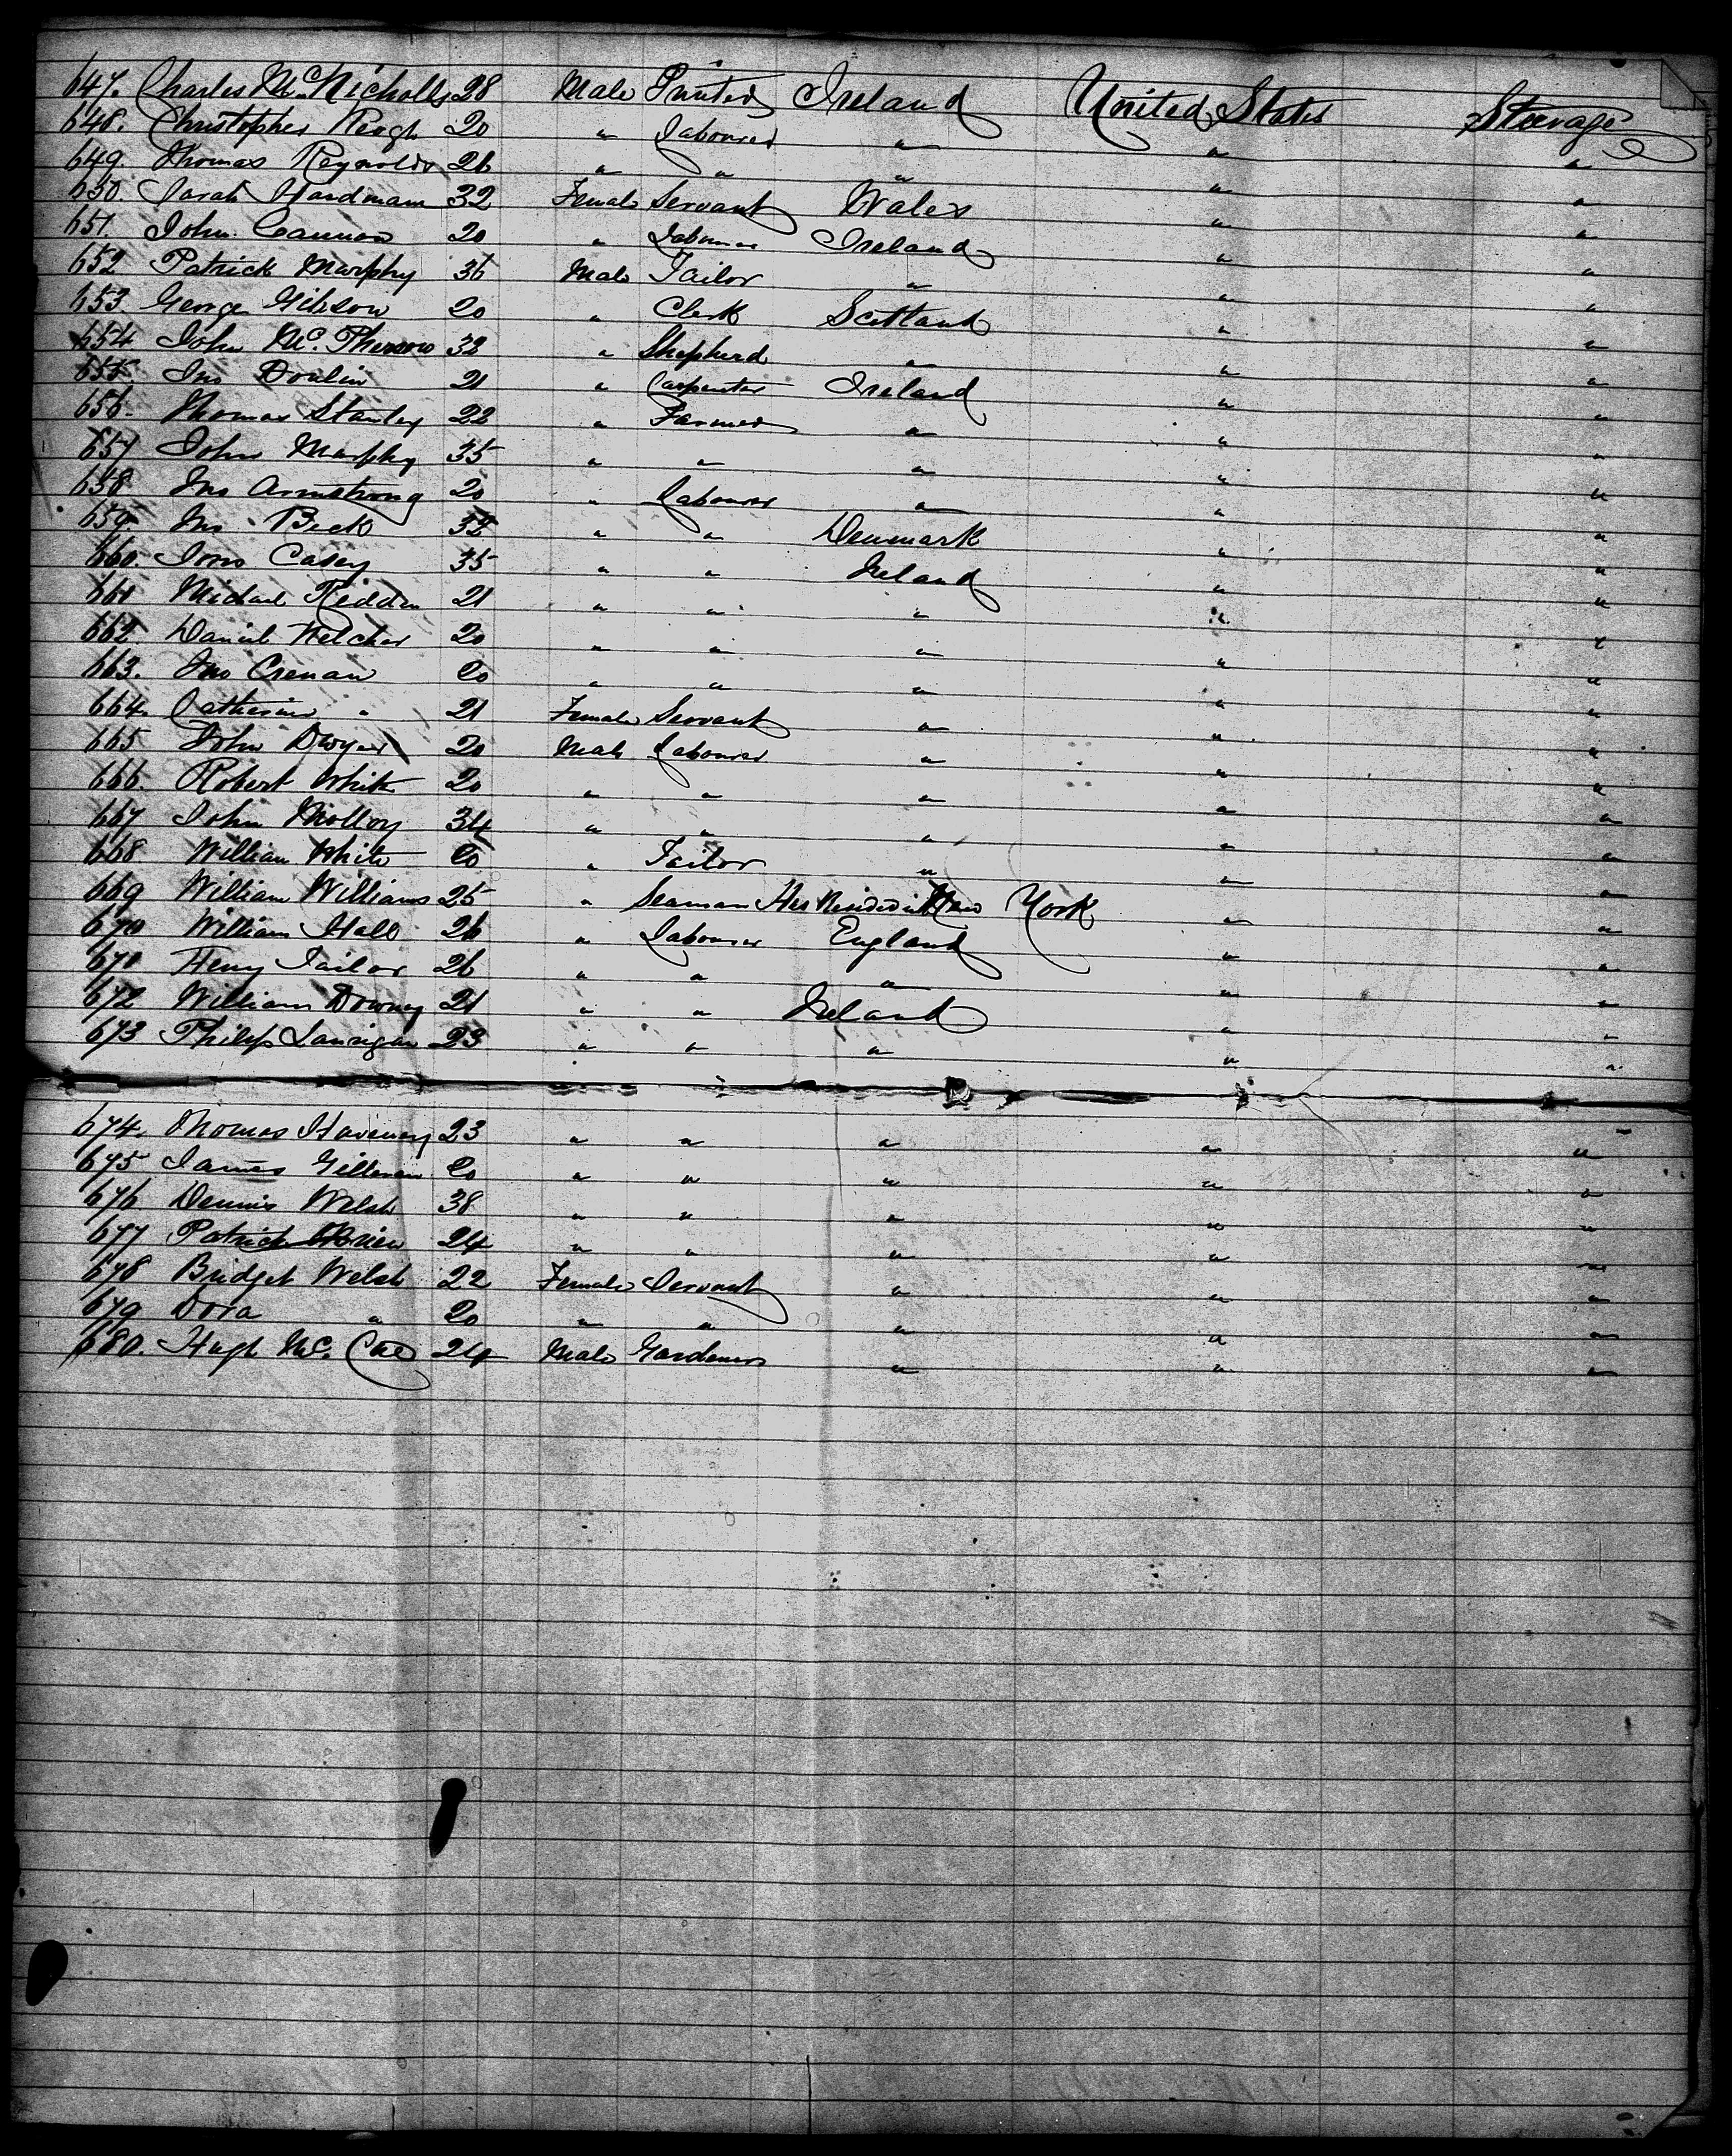 647. Charles McNicholls 28 Male Printer Ireland United States Steerage
648. Christopher Keogh 20 " Labourer " " "
649. Thomas Reynolds 26 " " " " "
650. Sarah Hardman 32 Female Servant Wales " "
651. John Cannon 20 " Labourer Ireland " "
652 Patrick Murphy 36 Male Tailor " " "
653. George Gibson 20 " Clerk Scotland " "
654 John Mc. Pherson 32 " Shepherd " " "
655 Jno Doulin 21 " Carpenter Ireland " "
656. Thomas Stanley 22 " Farmer " " "
657 John Murphy 35 " " " " "
658 Jno Armstrong 20 " Labourer " " "
659 Jno Beck 32 " " Denmark " "
660. Jno Casey 35 " " Ireland " "
661 Michael Reddin 21 " " " " "
662. Daniel 20 " " " " "
663. Jno Crenan 20 " " " " "
664. Catherine " 21 Female Servant " " "
665 John Dwyer 20 Male Labourer " " "
666. Robert White 20 " " " " "
667 John Molloy 34 " " " " "
668 William White 20 " Tailor " " "
669 William Williams 25 " Seaman Has Resided in New York " "
670 William Hall 26 " Labourer England " "
671 Henry Tailor 26 " " " " "
672 William Downey 21 " " Ireland " "
673 Philip Lanigan 23 " " " " "
674. Thomas 23 " " " " "
675 James 20 " " " " "
676 Dennis Welsh 38 " " " " "
677 Patrick OBrien 24 " " " " "
678 Bridget Welsh 22 Female Servant " " "
679 Dora " 20 " " " " "
680. Hugh Mc. Cae 24 Male Gardener " " "